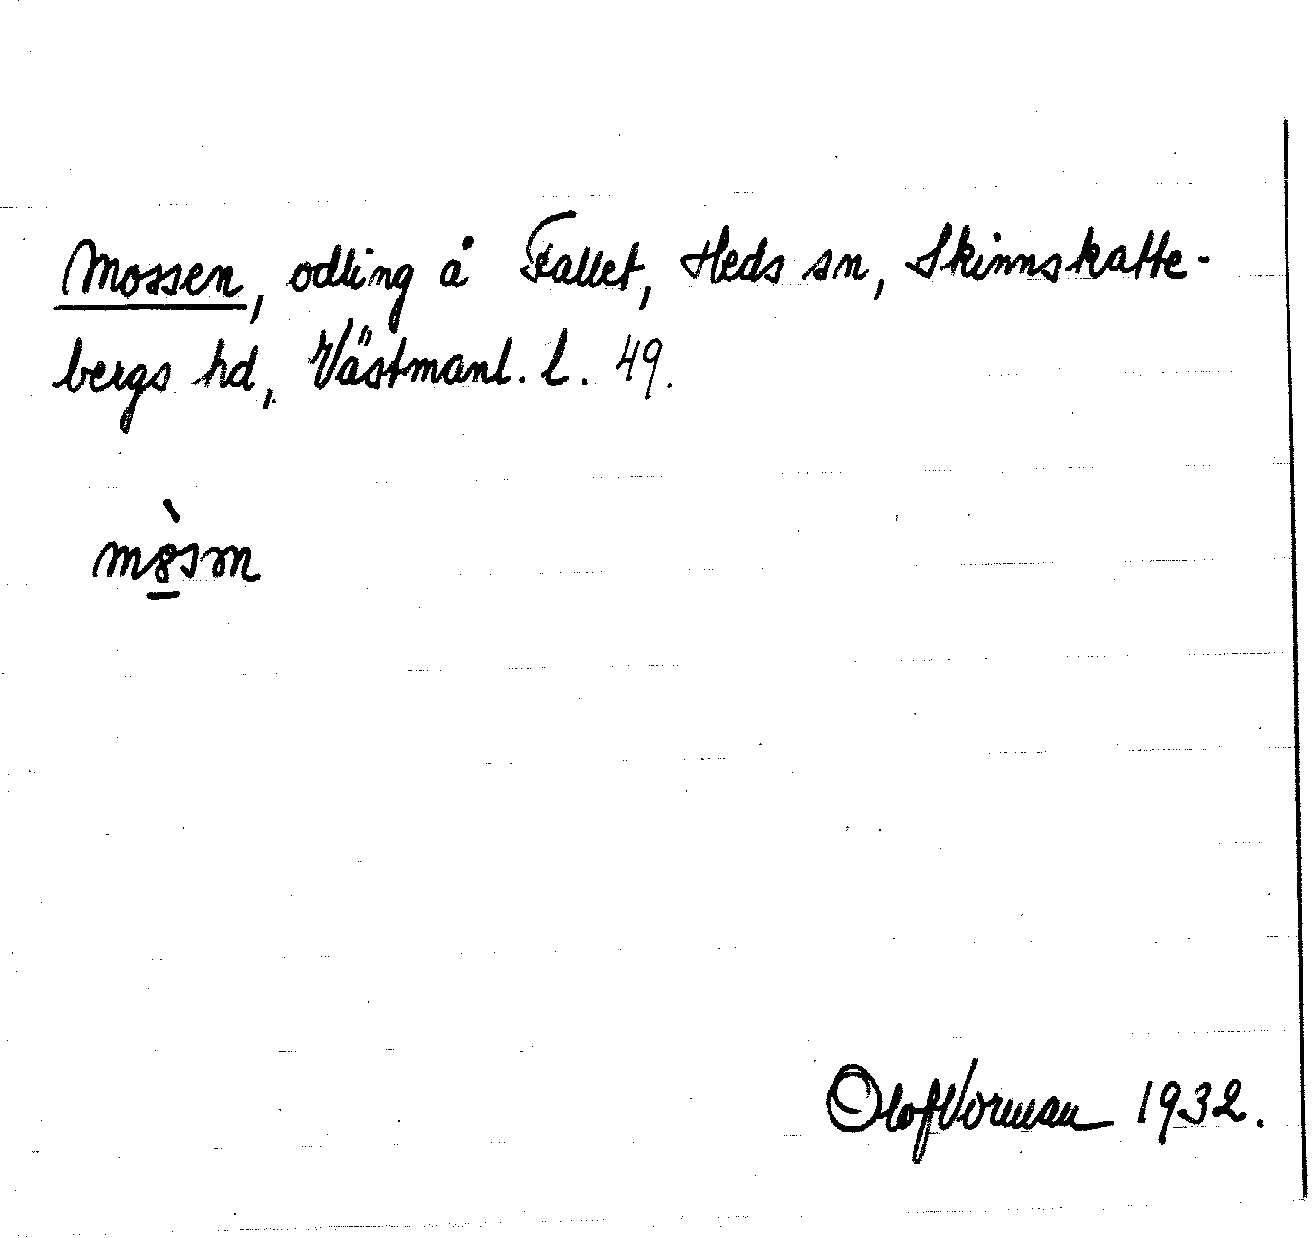 Mossen, odling å Fallet, Heds sn, Skinnskatte-
bergs hd, Västmanl. l. 49.
Olof Vorman 1932.